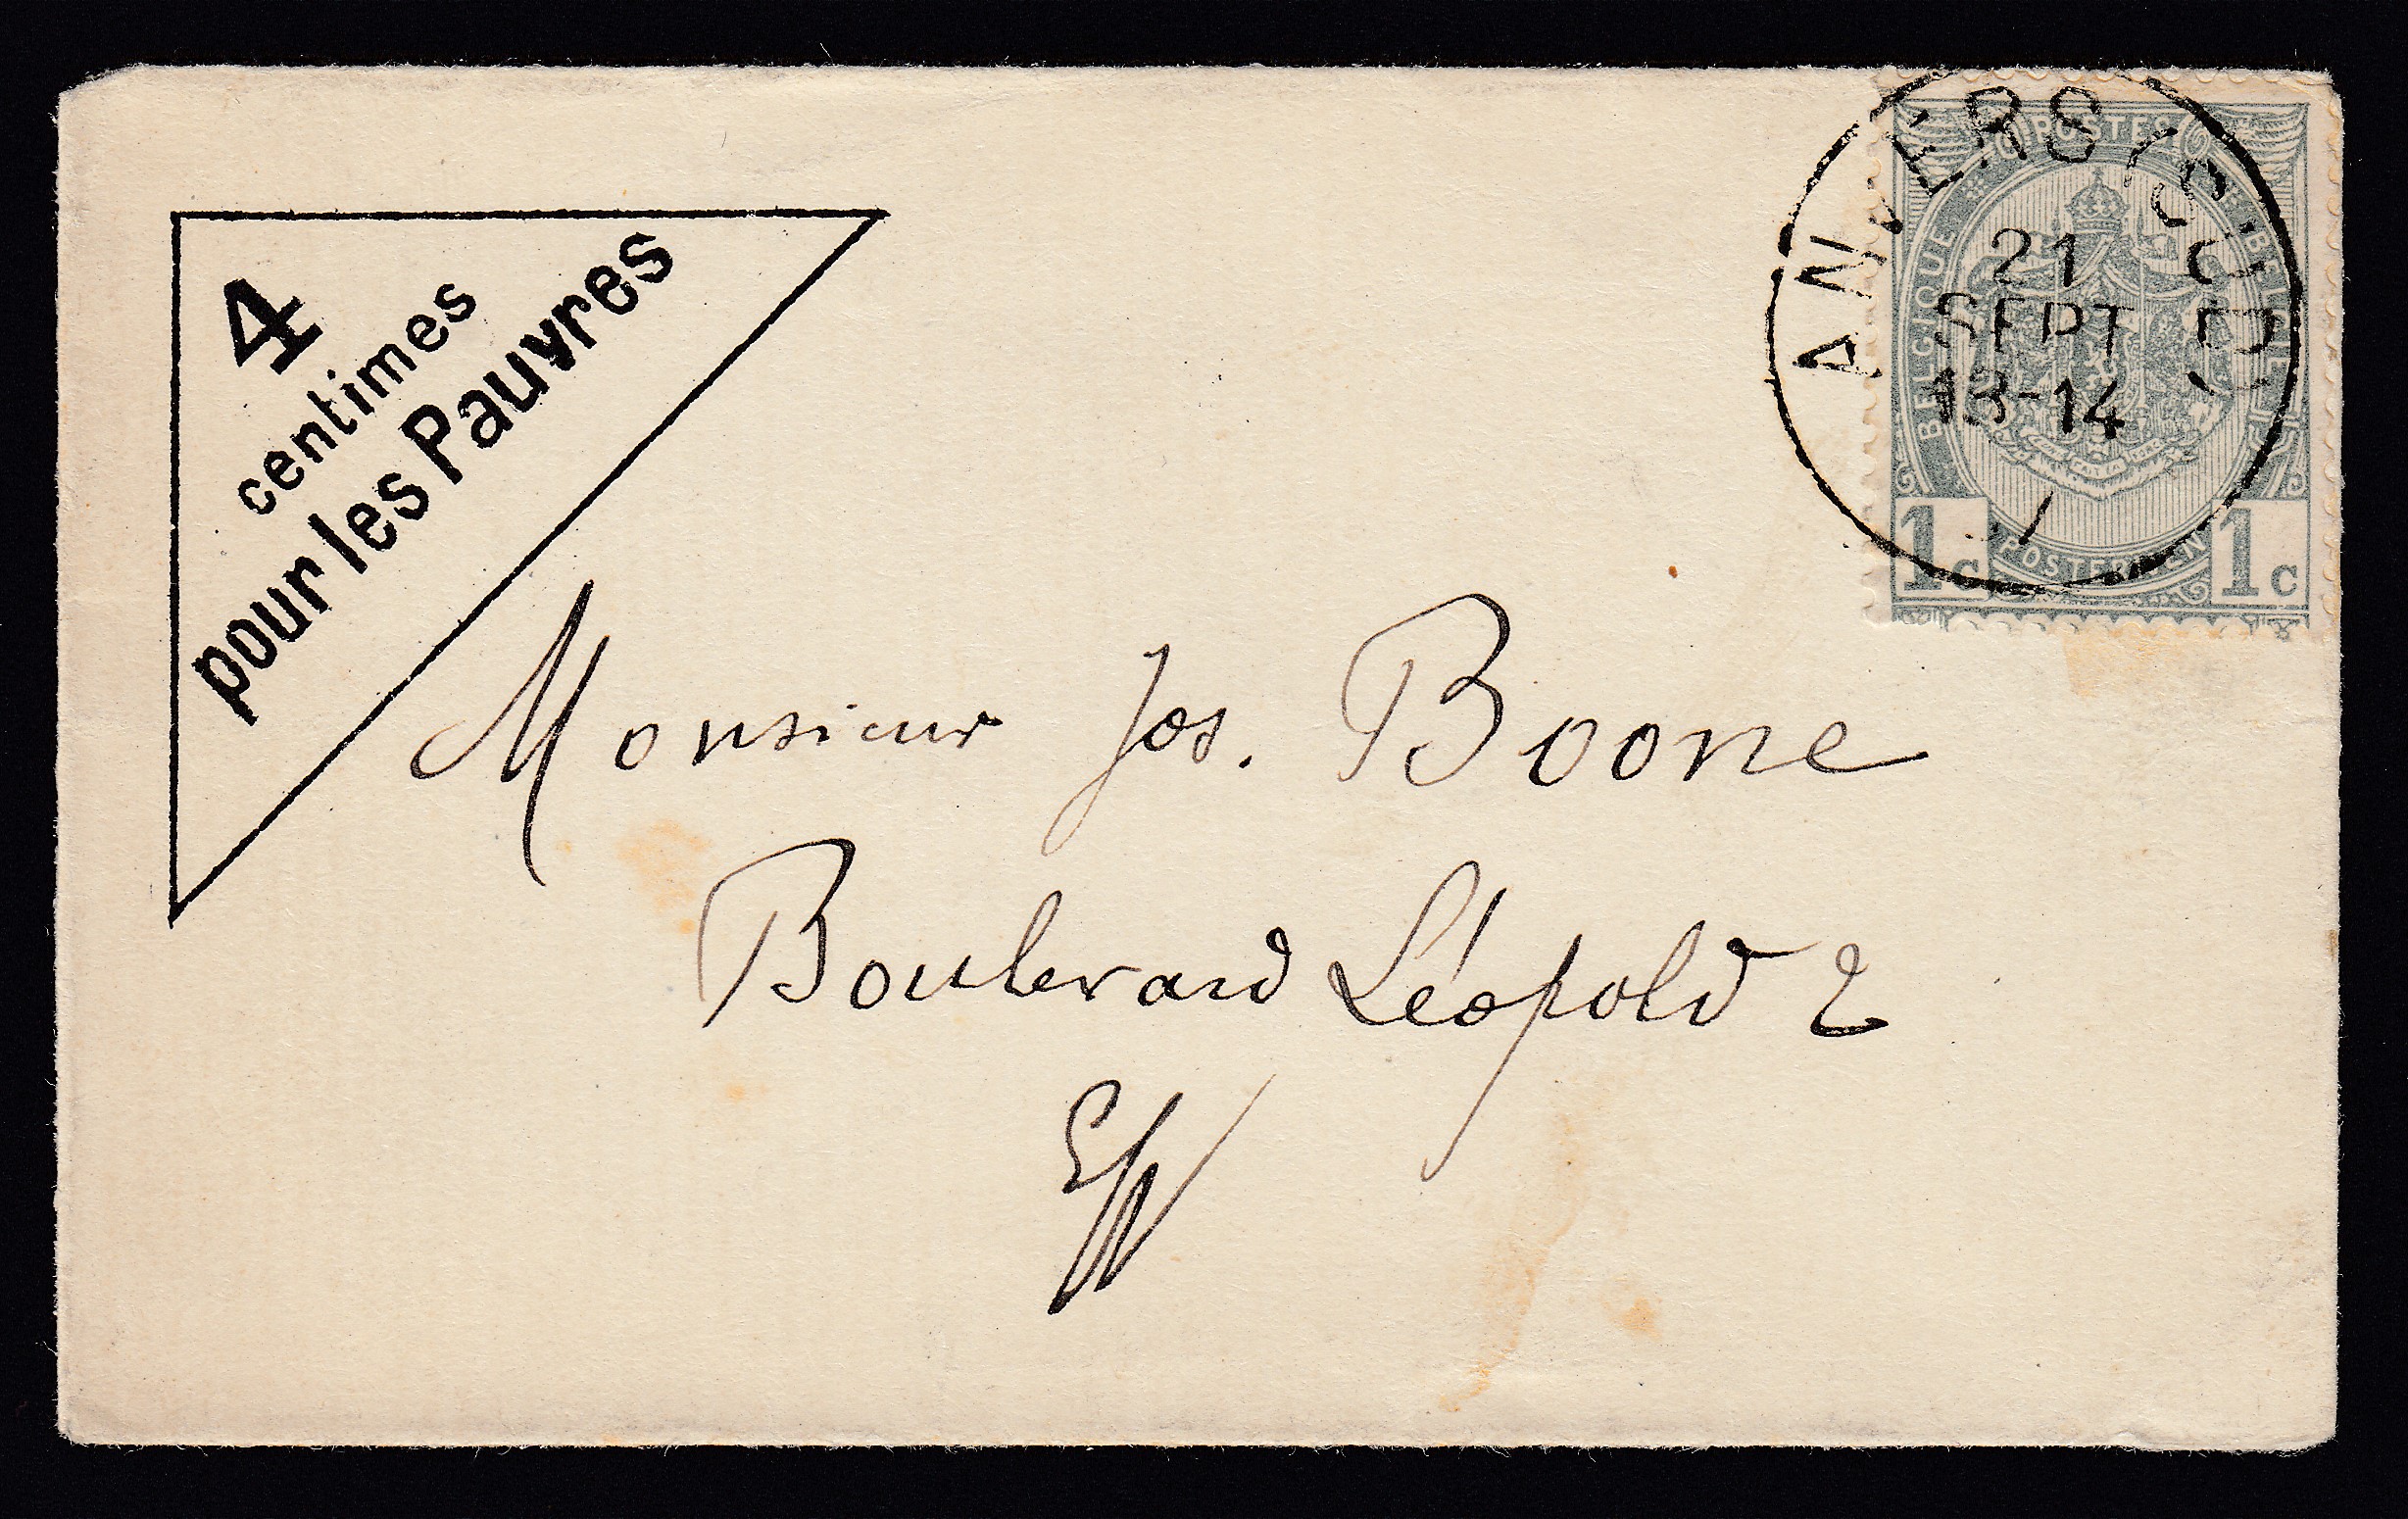 4
centimes
pour les Pauvres
POSTES
BELGIQUE
BELGIE
POSTERIJEN
1c
1c
ANVERS (SUD)
21
SEPT
13-14
Monsieur Jos. Boone
Boulevard Léopold 2
E/V